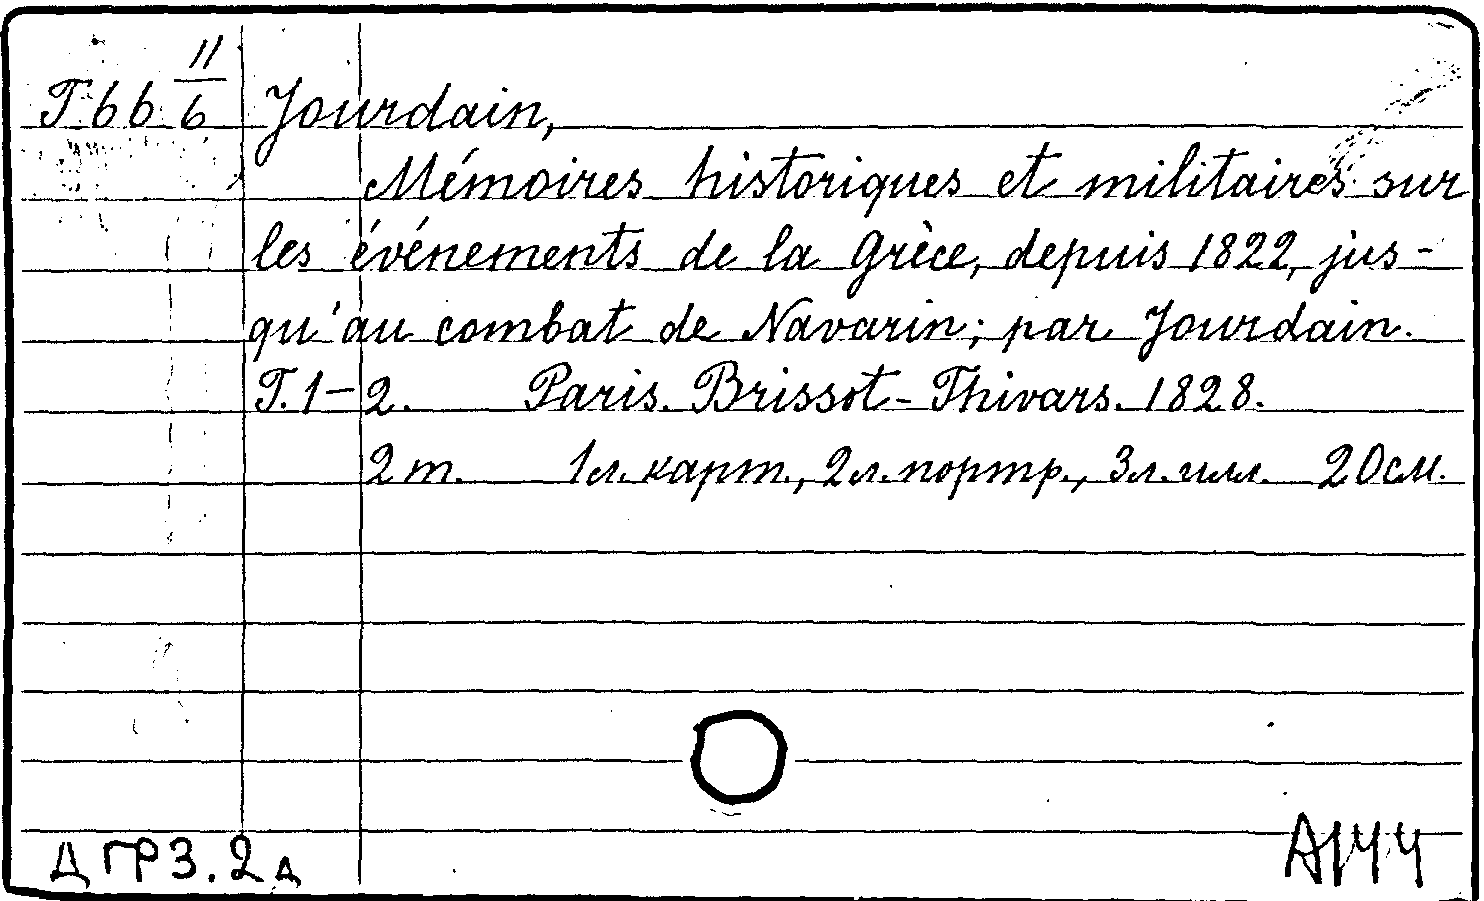 Т 66 11/6 Jourdain,
Mémoires historiques et militaires sur
les événements de la Grèce, depuis 1822, jus-
qu'au combat de Navarin; par Jourdain.
T. 1-2. Paris. Brissot-Thivars. 1828.
2 т. 1 л. карт., 2 л. портр., 3 л. илл. 20 см.
Д ГР 3.2д
А144